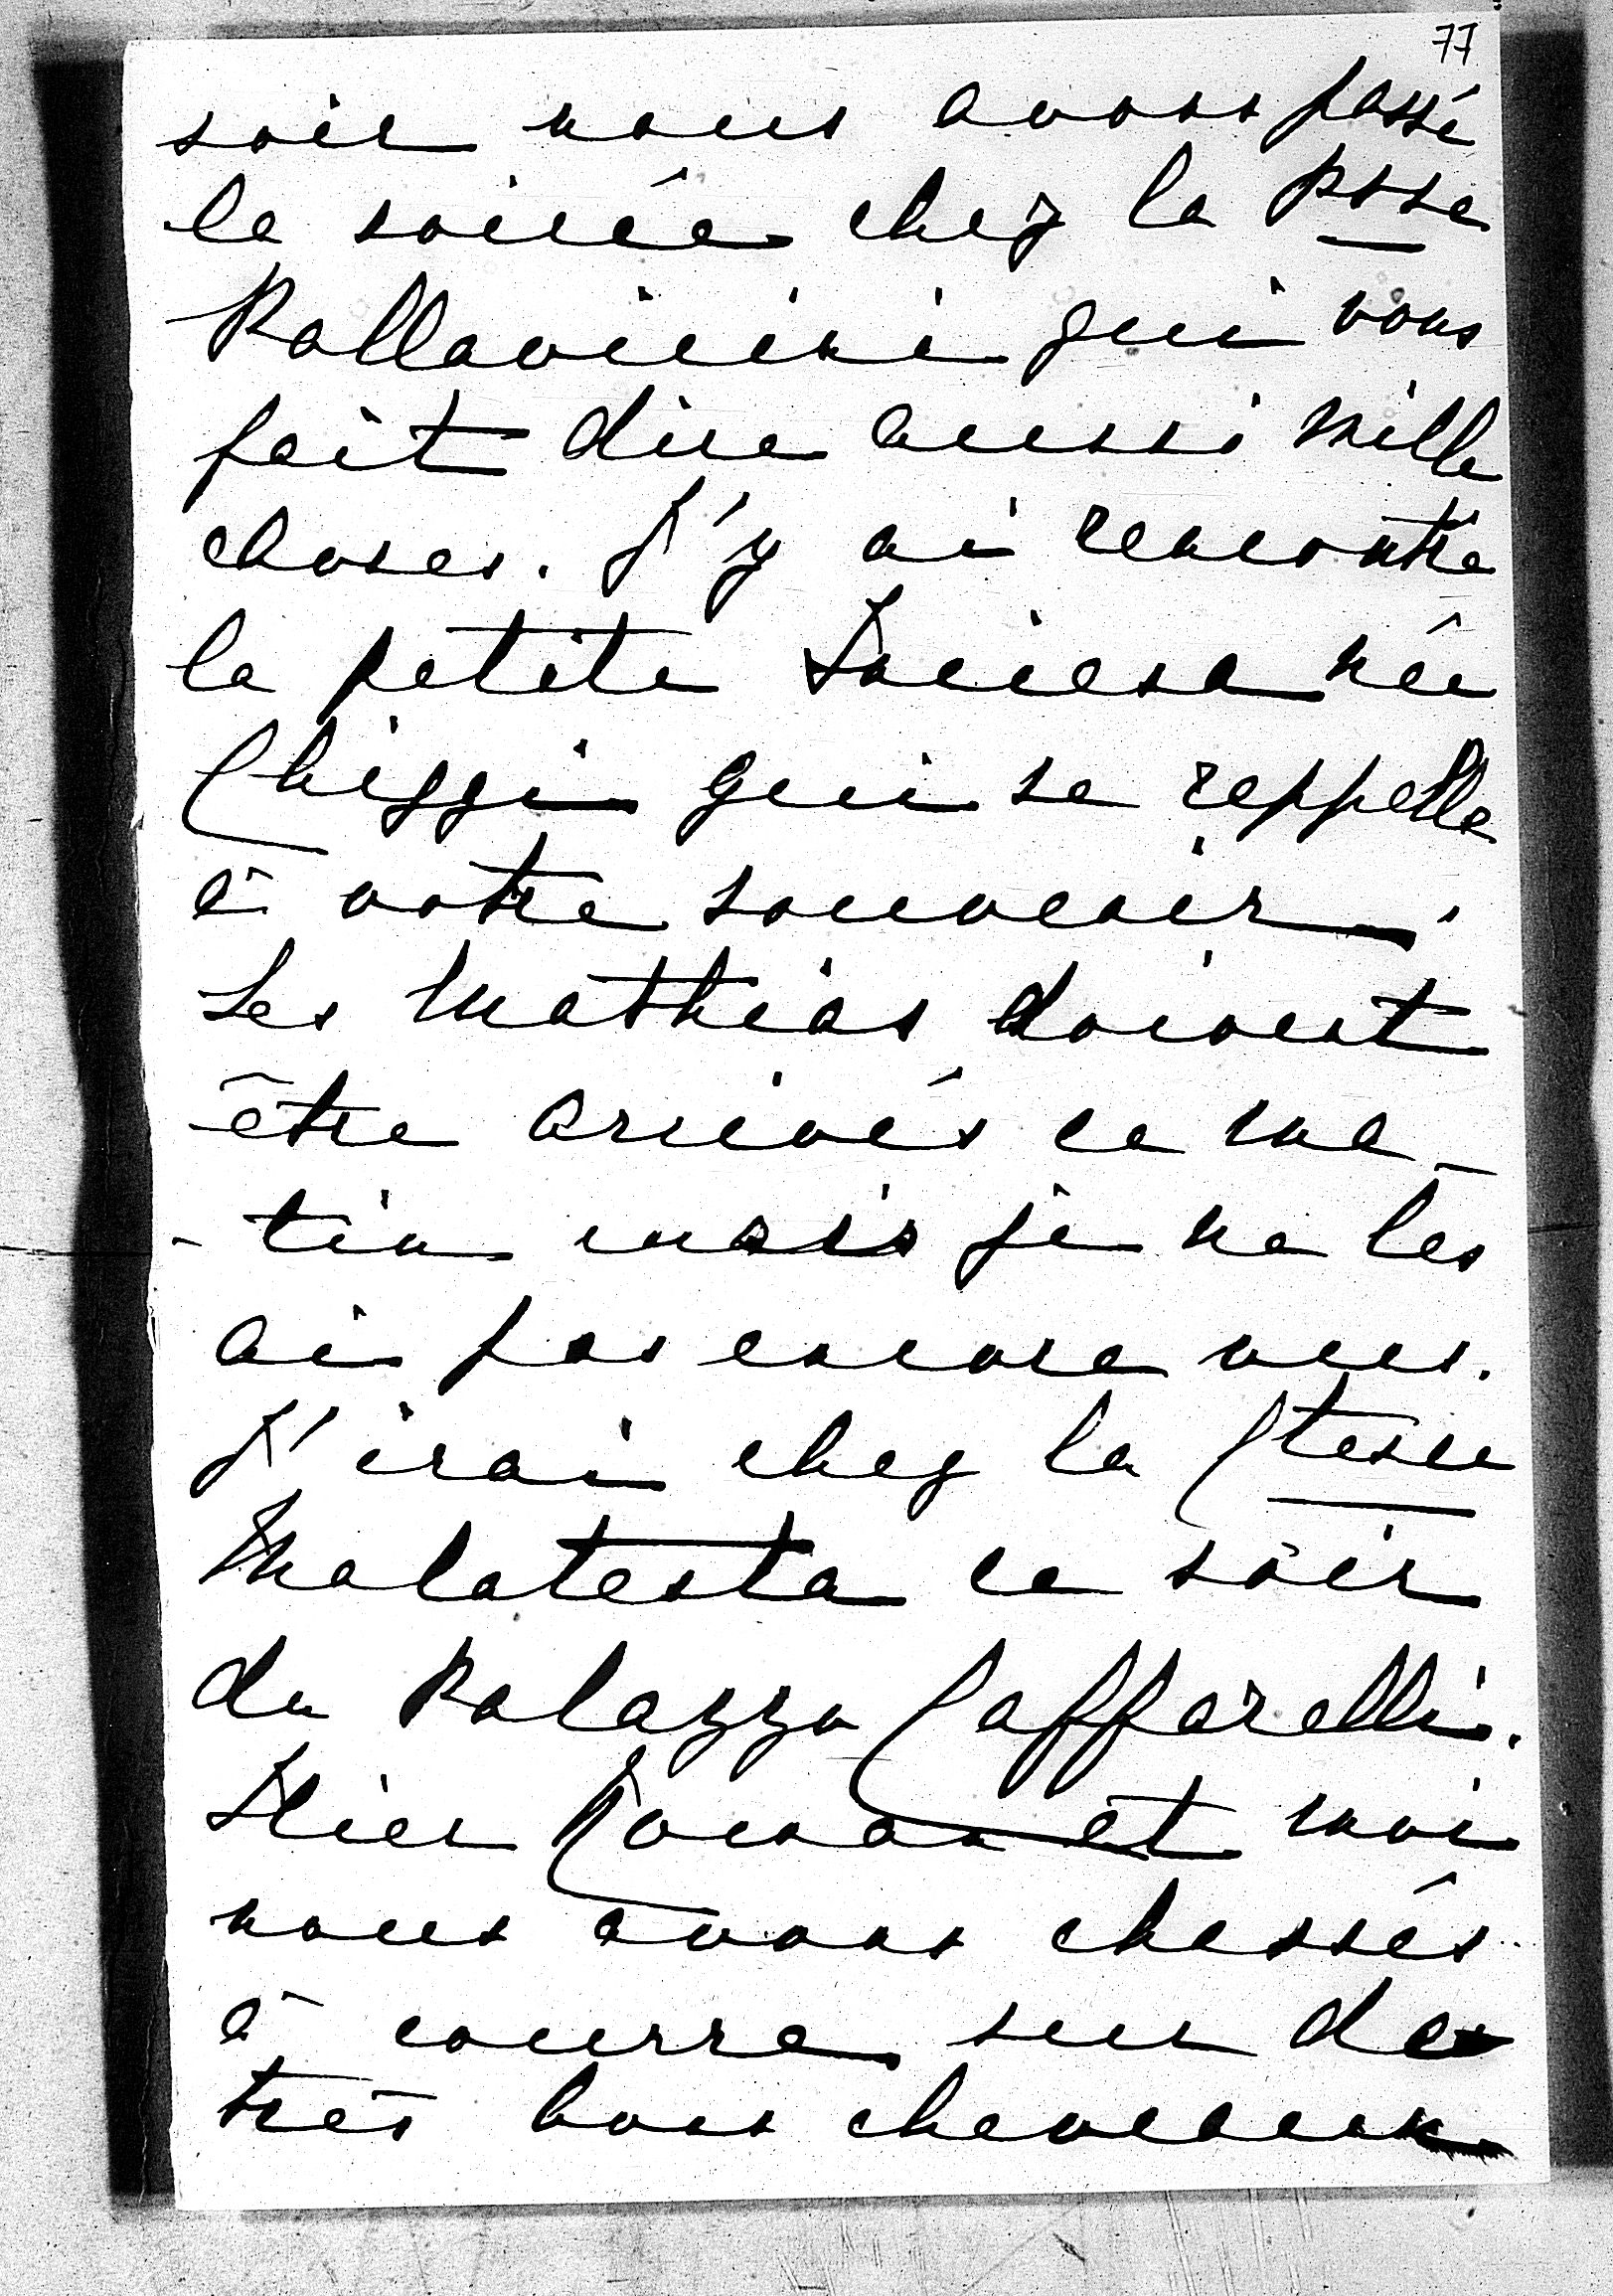 77
soir nous avons passé
la soirée chez la Psse
Pallavicini qui vous
fait dire aussi mille
choses. J'y ai rencontré
la petite née
Chiggi qui se reppelle
à votre souvenir.
Les Mathias doivent
être arrivés ce ma-
-tin mais je ne les
ai pas encore vus.
J'irai chez la Ctesse
Malatesta ce soir
du Palazzo Caffarelli.
Hier et moi
nous avons chassés
à courre sur de
très bons chevaux